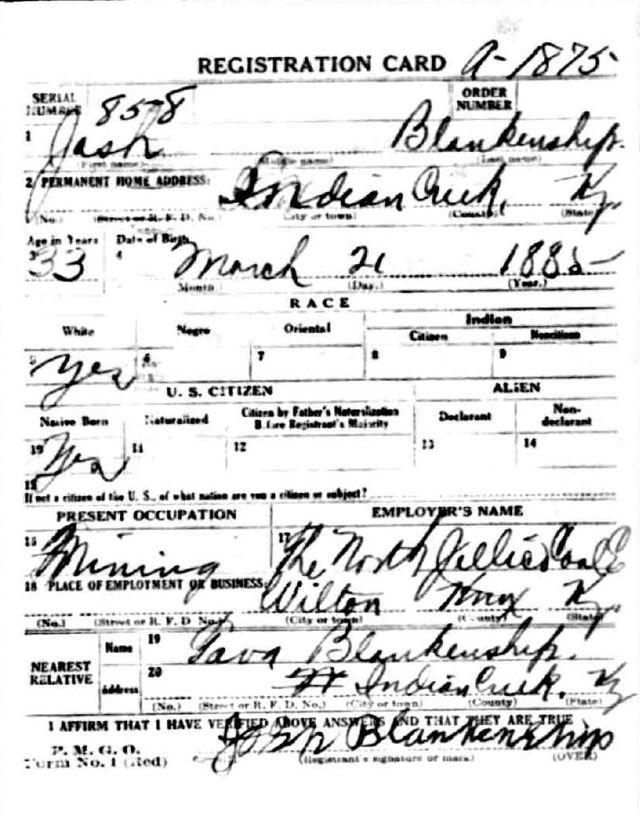 REGISTRATION CARD A-1875
SERIAL NUMBER 858 ORDER NUMBER
1 Josh Blankenship.
(First name) (Middle name) (Last name)
2 PERMANENT HOME ADDRESS: Indian Creek, Ky.
(No.) (Street or R. F. D. No.) (City or town) (County) (State)
Age in Years Date of Birth
3 33 4 March 21 1885
Month (Day.) (Year.)
RACE
White Negro Oriental Indian
Citizen Noncitizen
5 Yes 6 7 8 9
U. S. CITIZEN ALIEN
Native Born Naturalized Citizen by Father's Naturalization Before Registrant's Majority Declarant Non-declarant
10 Yes 11 12 13 14
15
If not a citizen of the U. S., of what nation are you a citizen or subject?
PRESENT OCCUPATION EMPLOYER'S NAME
16 Mining 17 The North Jellico Coal C
18 PLACE OF EMPLOYMENT OR BUSINESS: Wilton Knox Ky.
(No.) (Street or R. F. D. No.) (City or town) (County) (State)
NEAREST RELATIVE Name 19 Blankenship.
Address 20 Indian Creek. Ky
(No.) (Street or R. F. D. No.) (City or town) (County) (State)
I AFFIRM THAT I HAVE VERIFIED ABOVE ANSWERS AND THAT THEY ARE TRUE
P. M. G. O.
Form No. 1 (Red) Josh Blankenship
(Registrant's signature or mark) (OVER)